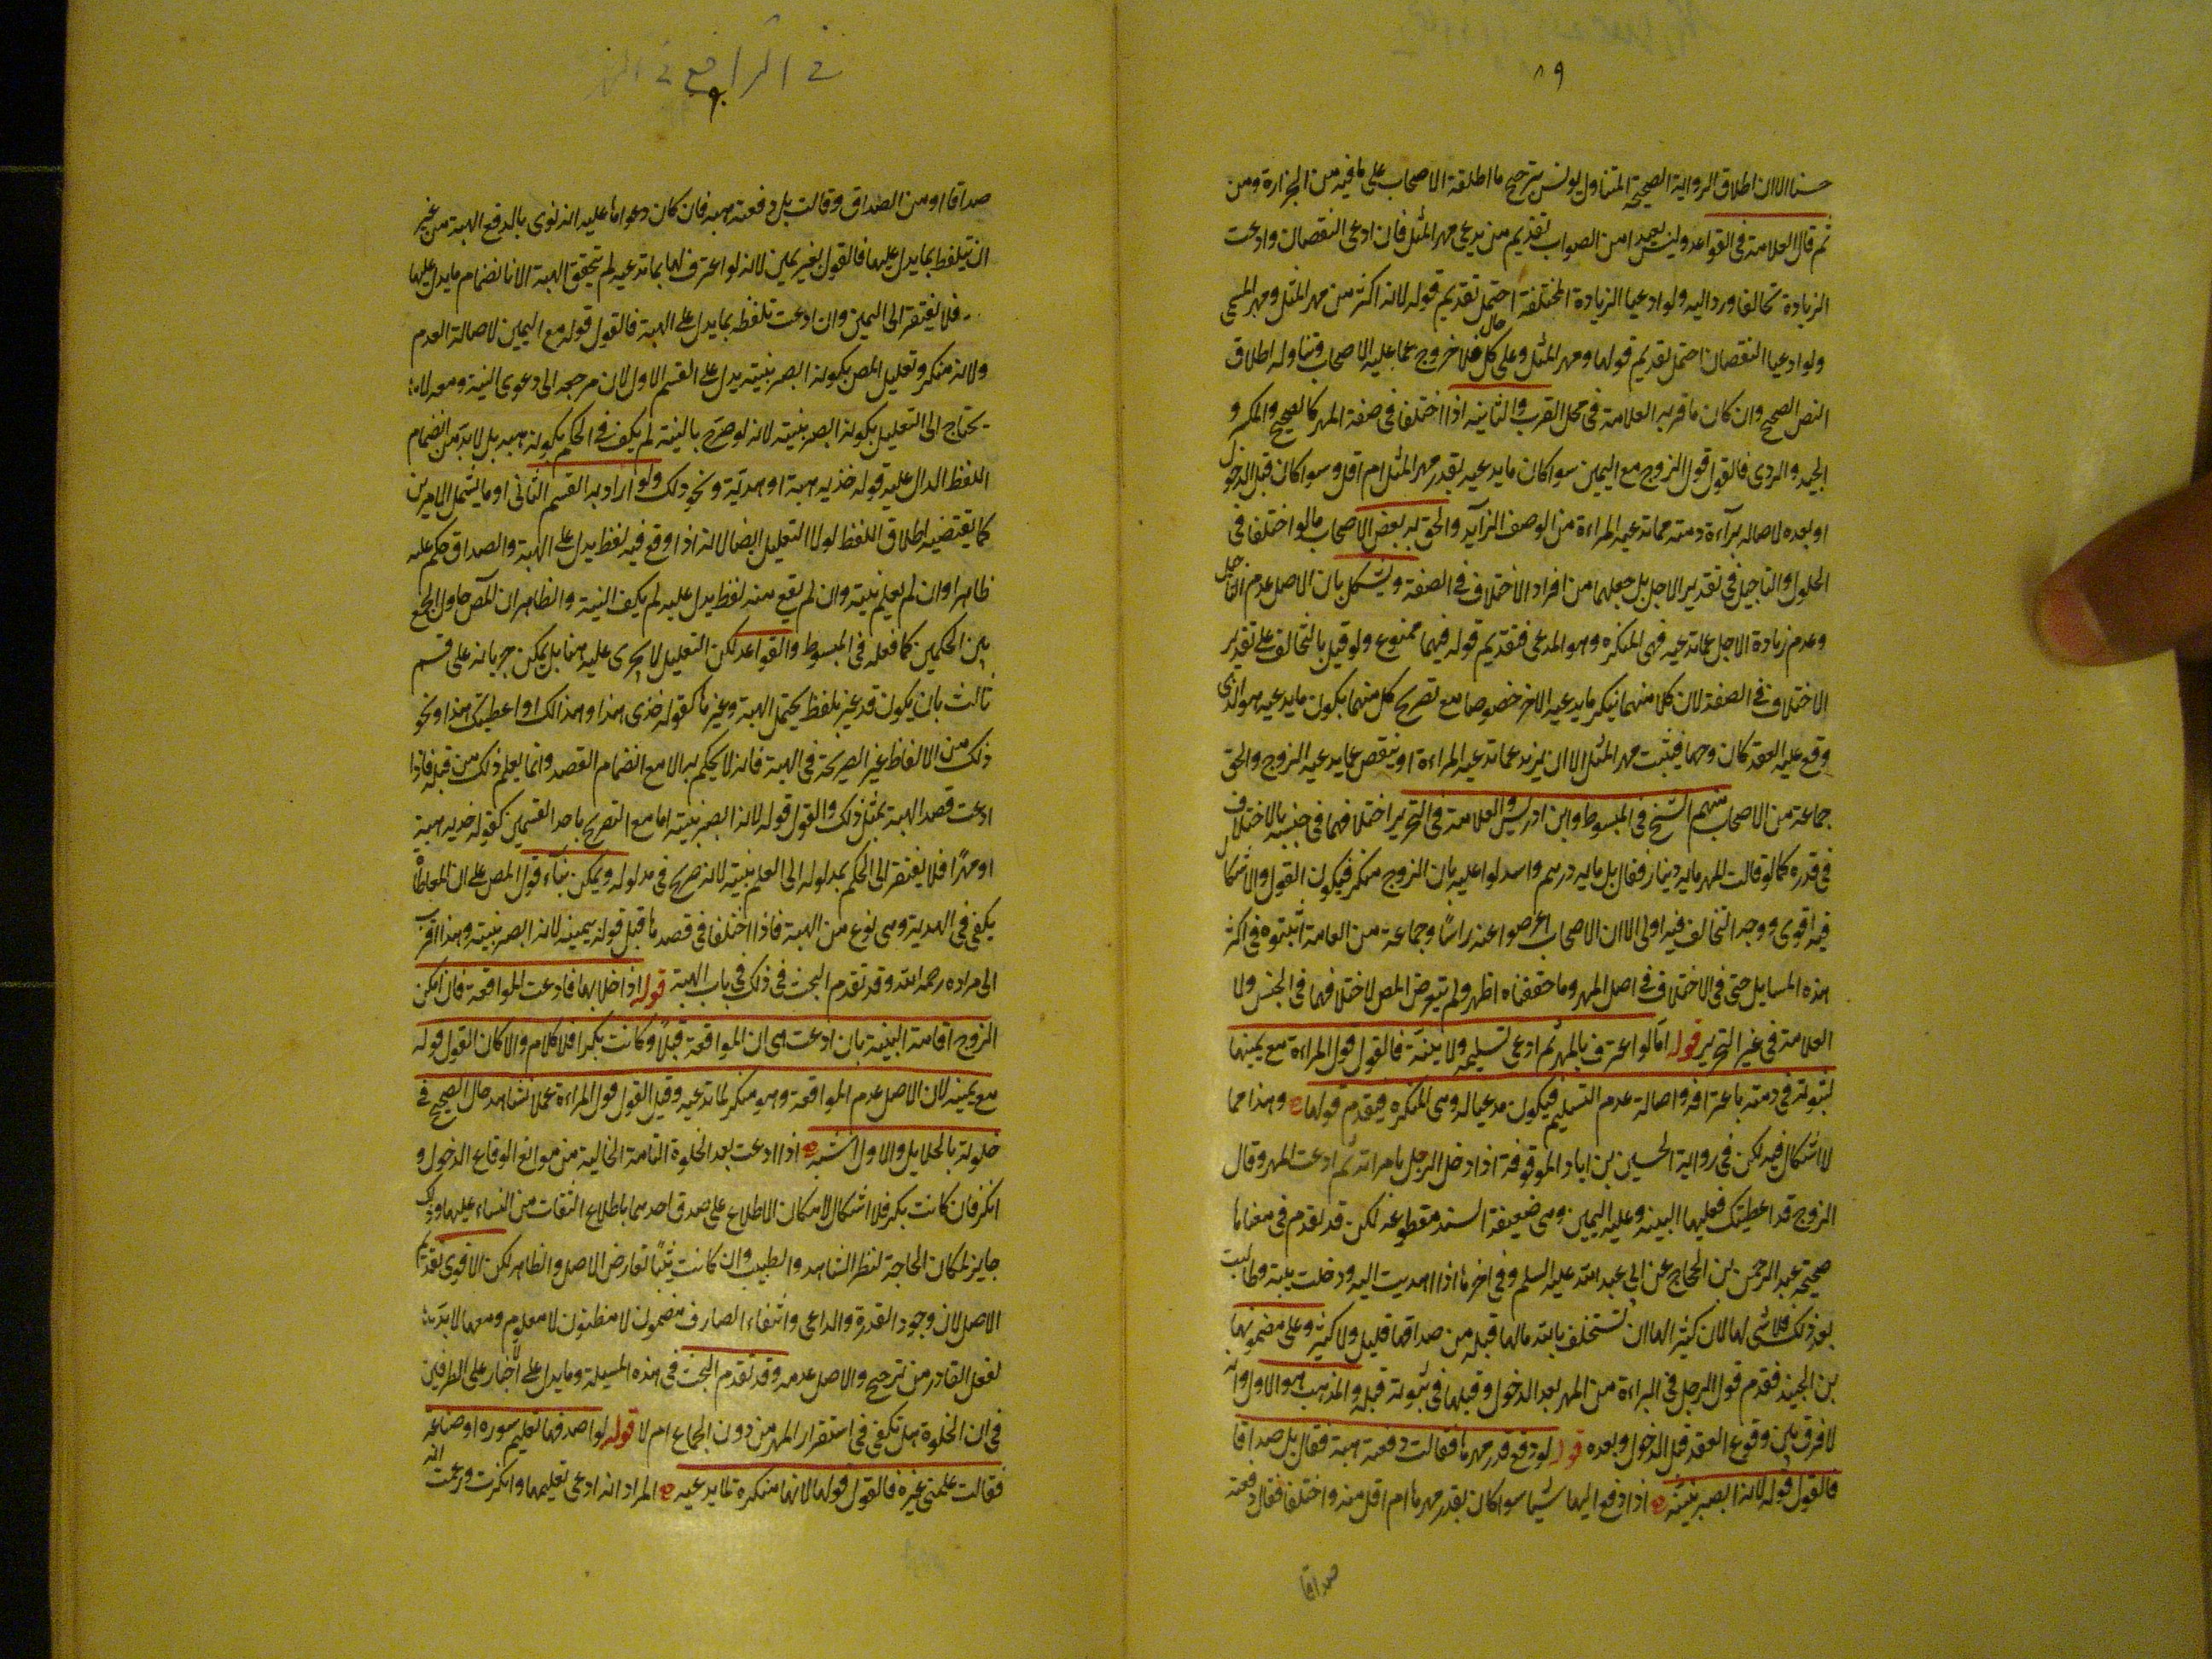 ٨٩
حسنا الا ان اطلاق الرواية الصحيحة المتناول يونس بترجيح ما اطلقه الاصحاب على ما فيه من الجزارة ومن
ثم قال العلامة في القواعد وليس ببعيد من الصواب تقديم من يدعي مهر المثل فان ادعى النقصان وادعت
الزيادة تحالفا ورد اليه ولو ادعيا الزيادة المختلفة احتمل تقديم قوله لانه اكثر من مهر المثل ومهر المسمى
ولو ادعيا النقصان احتمل تقديم قولها ومهر المثل وعلى كل حال فلا خروج عما عليه الاصحاب وتناوله اطلاق
النص الصحيح وان كان ما قربه العلامة في محل القرب والثانية اذا اختلفا في صفة المهر كالصحيح والمكسر و
الجيد والردى فالقول قول الزوج مع اليمين سوا كان ما يدعيه بقدر مهر المثل ام اقل وسوا كان قبل الدخول
او بعده لاصالة براءة ذمته مما تدعيه المراءة من الوصف الزايد والحق به بعض الاصحاب ما لو اختلفا في
الحلول والتاجيل في تقدير الاجل بل جعلهما من افراد الاختلاف في الصفة ويشكل بان الاصل عدم التاجيل
وعدم زيادة الاجل عما تدعيه فهي المنكره وهو المدعى فتقديم قوله فيهما ممنوع ولو قيل بالتحالف على تقدير
الاختلاف في الصفة لان كلا منهما ينكر ما يدعيه الاخر خصوصا مع تصريح كل منهما بكون ما يدعيه هو الذي
وقع عليه العقد كان وجها فيثبت مهر المثل الا ان يزيد عما تدعيه المراءة او ينقص عما يدعيه الزوج والحق
جماعة من الاصحاب منهم الشيخ في المبسوط وابن ادريس والعلامة في التحرير اختلافهما في جنسه بالاختلاف
في قدره كما لو قالت المهر مايه دينار فقال بل مايه درهم واستدلوا عليه بان الزوج منكر فيكون القول والاشكال
فيه اقوى ووجه التحالف فيه اولى الا ان الاصحاب اعرضوا عنه راسًا وجماعة من العامة اثبتوه في اكثر
هذه المسايل حتى في الاختلاف في اصل المهر وما حققناه اظهر ولم يتعرض المص لاختلافهما في الجنس ولا
العلامة في غير التحرير قوله اما لو اعترف بالمهر ثم ادعى تسليمه ولا بينة فالقول قول المراءة مع يمينها
لثبوته في ذمته باعترافه واصالة عدم التسليم فيكون مدعيا له وهي المنكره فيقدم قولها وهذا مما
لا اشكال فيه لكن في رواية الحسين بن زياد الموقوفة اذا دخل الرجل بامراته ثم ادعت المهر وقال
الزوج قد اعطيتك فعليها البينة وعليه اليمين وهي ضعيفة السند مقطوعة لكن قد تقدم في معناها
صحيحة عبد الرحمن بن الحجاج عن ابي عبد الله عليه السلم وفي اخرها اذا اهديت اليه ودخلت بيته وطالبت
بعد ذلك فلا شي لها لانه كثير لها ان تستحلف بالله ما لها قبله من صداقها قليل ولا كثير وعلى مضمونها
بن الجنيد فقدم قول الرجل في البراءة من المهر بعد الدخول وقبلها في ثبوته قبله والمذهب هو الاول وانه
لا فرق بين وقوع العقد قبل الدخول وبعده قوله لو دفع قدر مهرها فقالت دفعته هبة فقال بل صداقا
فالقول قوله لانه ابصر بنيته اذا دفع اليها شيا سوا كان بقدر مهرها ام اقل منه واختلفا فقال دفعته
صداقا
في
صداقا او من الصداق وقالت بل دفعته هبه فان كان دعواها عليه انه نوى بالدفع الهبة من غير
ان يتلفظ بما يدل عليها فالقول بغير يمين لانه لو اعترف لها بما تدعيه لم تتحقق الهبة الا بانضمام ما يدل عليها
فلا يفتقر الى اليمين وان ادعت تلفظه بما يدل على الهبة فالقول قوله مع اليمين لاصالة العدم
ولانه منكر وتعليل المص بكونه ابصر بنيته يدل على القسم الاول لان مرجعه الى دعوى النية ومعه لا
يحتاج الى التعليل بكونه ابصر بنيته لانه لو صرح بالنية لم يكف في الحكم بكونه هبه بل لا بد من انضمام
اللفظ الدال عليه قوله خذيه هبة او هدية ونحو ذلك ولو اراد به القسم الثاني او ما يشمل الامرين
كما يقتضيه اطلاق اللفظ لولا التعليل ايضا لانه اذا وقع فيه لفظ يدل على الهبة والصداق حكم عليه
ظاهرا وان لم يعلم بنيته وان لم يقع منه لفظ يدل عليه لم يكف النية والظاهر ان المص حاول الجمع
بين الحكمين كما فعله في المبسوط والقواعد لكن التعليل لا يجري عليه هنا بل يمكن جريانه على قسم
ثالث بان يكون قد عبر بلفظ يحتمل الهبة وغيرها كقوله خذي هذا وهذا لك او اعطيتك هذا ونحو
ذلك من الالفاظ غير الصريحة في الهبة فانه لا يحكم به الا مع انضمام القصد وانما يعلم ذلك من قبله فاذا
ادعت قصد الهبة بمثل ذلك والقول قوله لانه ابصر بنيته اما مع التصريح باحد القسمين كقوله خذيه هبة
او مهرًا فلا يفتقر الى الحكم بمدلوله الى العلم بنيته لانه صريح في مدلوله ويمكن بناء قول المص على ان المعاطاة
يكفي في الهدية وهي نوع من الهبة فاذا اختلفا في قصدها قبل قوله بيمينه لانه ابصر بنيته وهذا اقرب
الى مراده رحمه الله وقد تقدم البحث في ذلك في باب الهبة قوله اذا خلا بها فادعت المواقعة فان امكن
الزوج اقامة البينة بان ادعت هي ان المواقعة قبلاً وكانت بكرا فلا كلام والا كان القول قوله
مع يمينه لان الاصل عدم المواقعة وهو منكر لما تدعيه وقيل القول قول المراءة عملا بشاهد حال الصحيح في
خلوته بالحلايل والاول اشبه اذا ادعت بعد الخلوة التامة الخالية من موانع الوقاع الدخول و
انكر فان كانت بكر فلا اشكال لامكان الاطلاع على صدق احدهما باطلاع الثقات من النساء عليها وذلك
جايز لمكان الحاجة لنظر الشاهد والطبيب وان كانت ثيبًا تعارض الاصل والظاهر لكن الاقوى تقديم
الاصل لان وجود القدرة والداعي وانتفاء الصارف مضمون لا مظنون لا معلوم ومعها لا بد
لفعل القادر من ترجيح والاصل عدمه وقد تقدم البحث في هذه المسيلة وما يدل على الاخبار على الطرفين
في ان الخلوة هل تكفي في استقرار المهر من دون الجماع ام لا قوله لو اصدقها تعليم سوره او صناعه
فقالت علمني غيره فالقول قولها لانها منكرة لما يدعيه المراد انه ادعى تعليمها وانكرت وزعمت انه